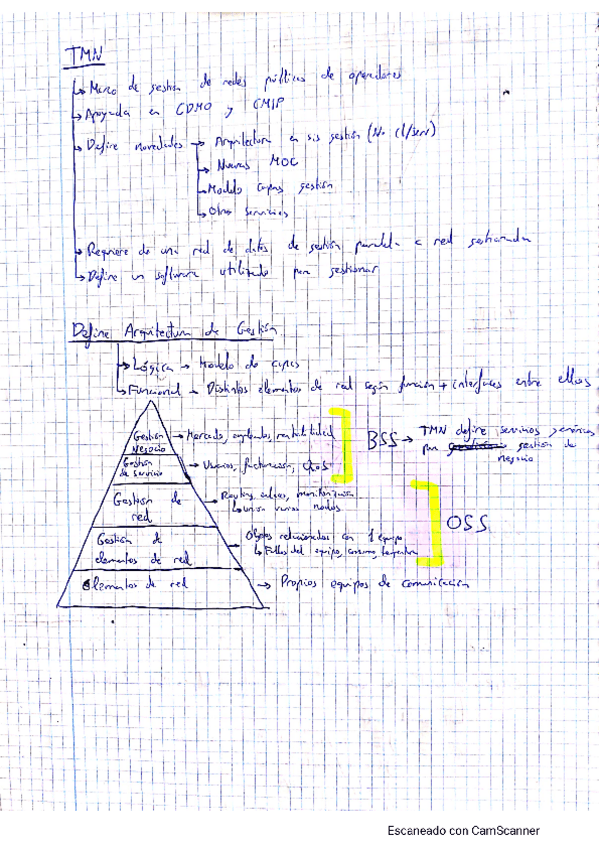 TMN
↳ Marco de gestión de redes públicas de operadores
↳ Apoyada en CDMO y CMIP
↳ Define novedades → Arquitectura en sis gestión (No cl/serv)
→ Nuevas MOC
→ Modelo capas gestión
↳ Otros servicios
↳ Requiere de una red de datos de gestión paralela a red gestionada
↳ Define un software utilizado para gestionar
Define Arquitectura de Gestión
↳ Lógica → Modelo de capas
↳ Funcional → Distintos elementos de red según función + interfaces entre ellos
Gestión Negocio → Mercado, empleados, rentabilidad
BSS → TMN define servicios genéricos
para gestión de
negocio
Gestión de servicio → Usuarios, facturación, QoS
Gestión de red → Routing, enlaces, monitorización
↳ unión varios nodos
OSS
Gestión de elementos de red → Objetos relacionados con 1 equipo
↳ Fallos del equipo, consumo, temperatura
Elementos de red → Propios equipos de comunicación
Escaneado con CamScanner